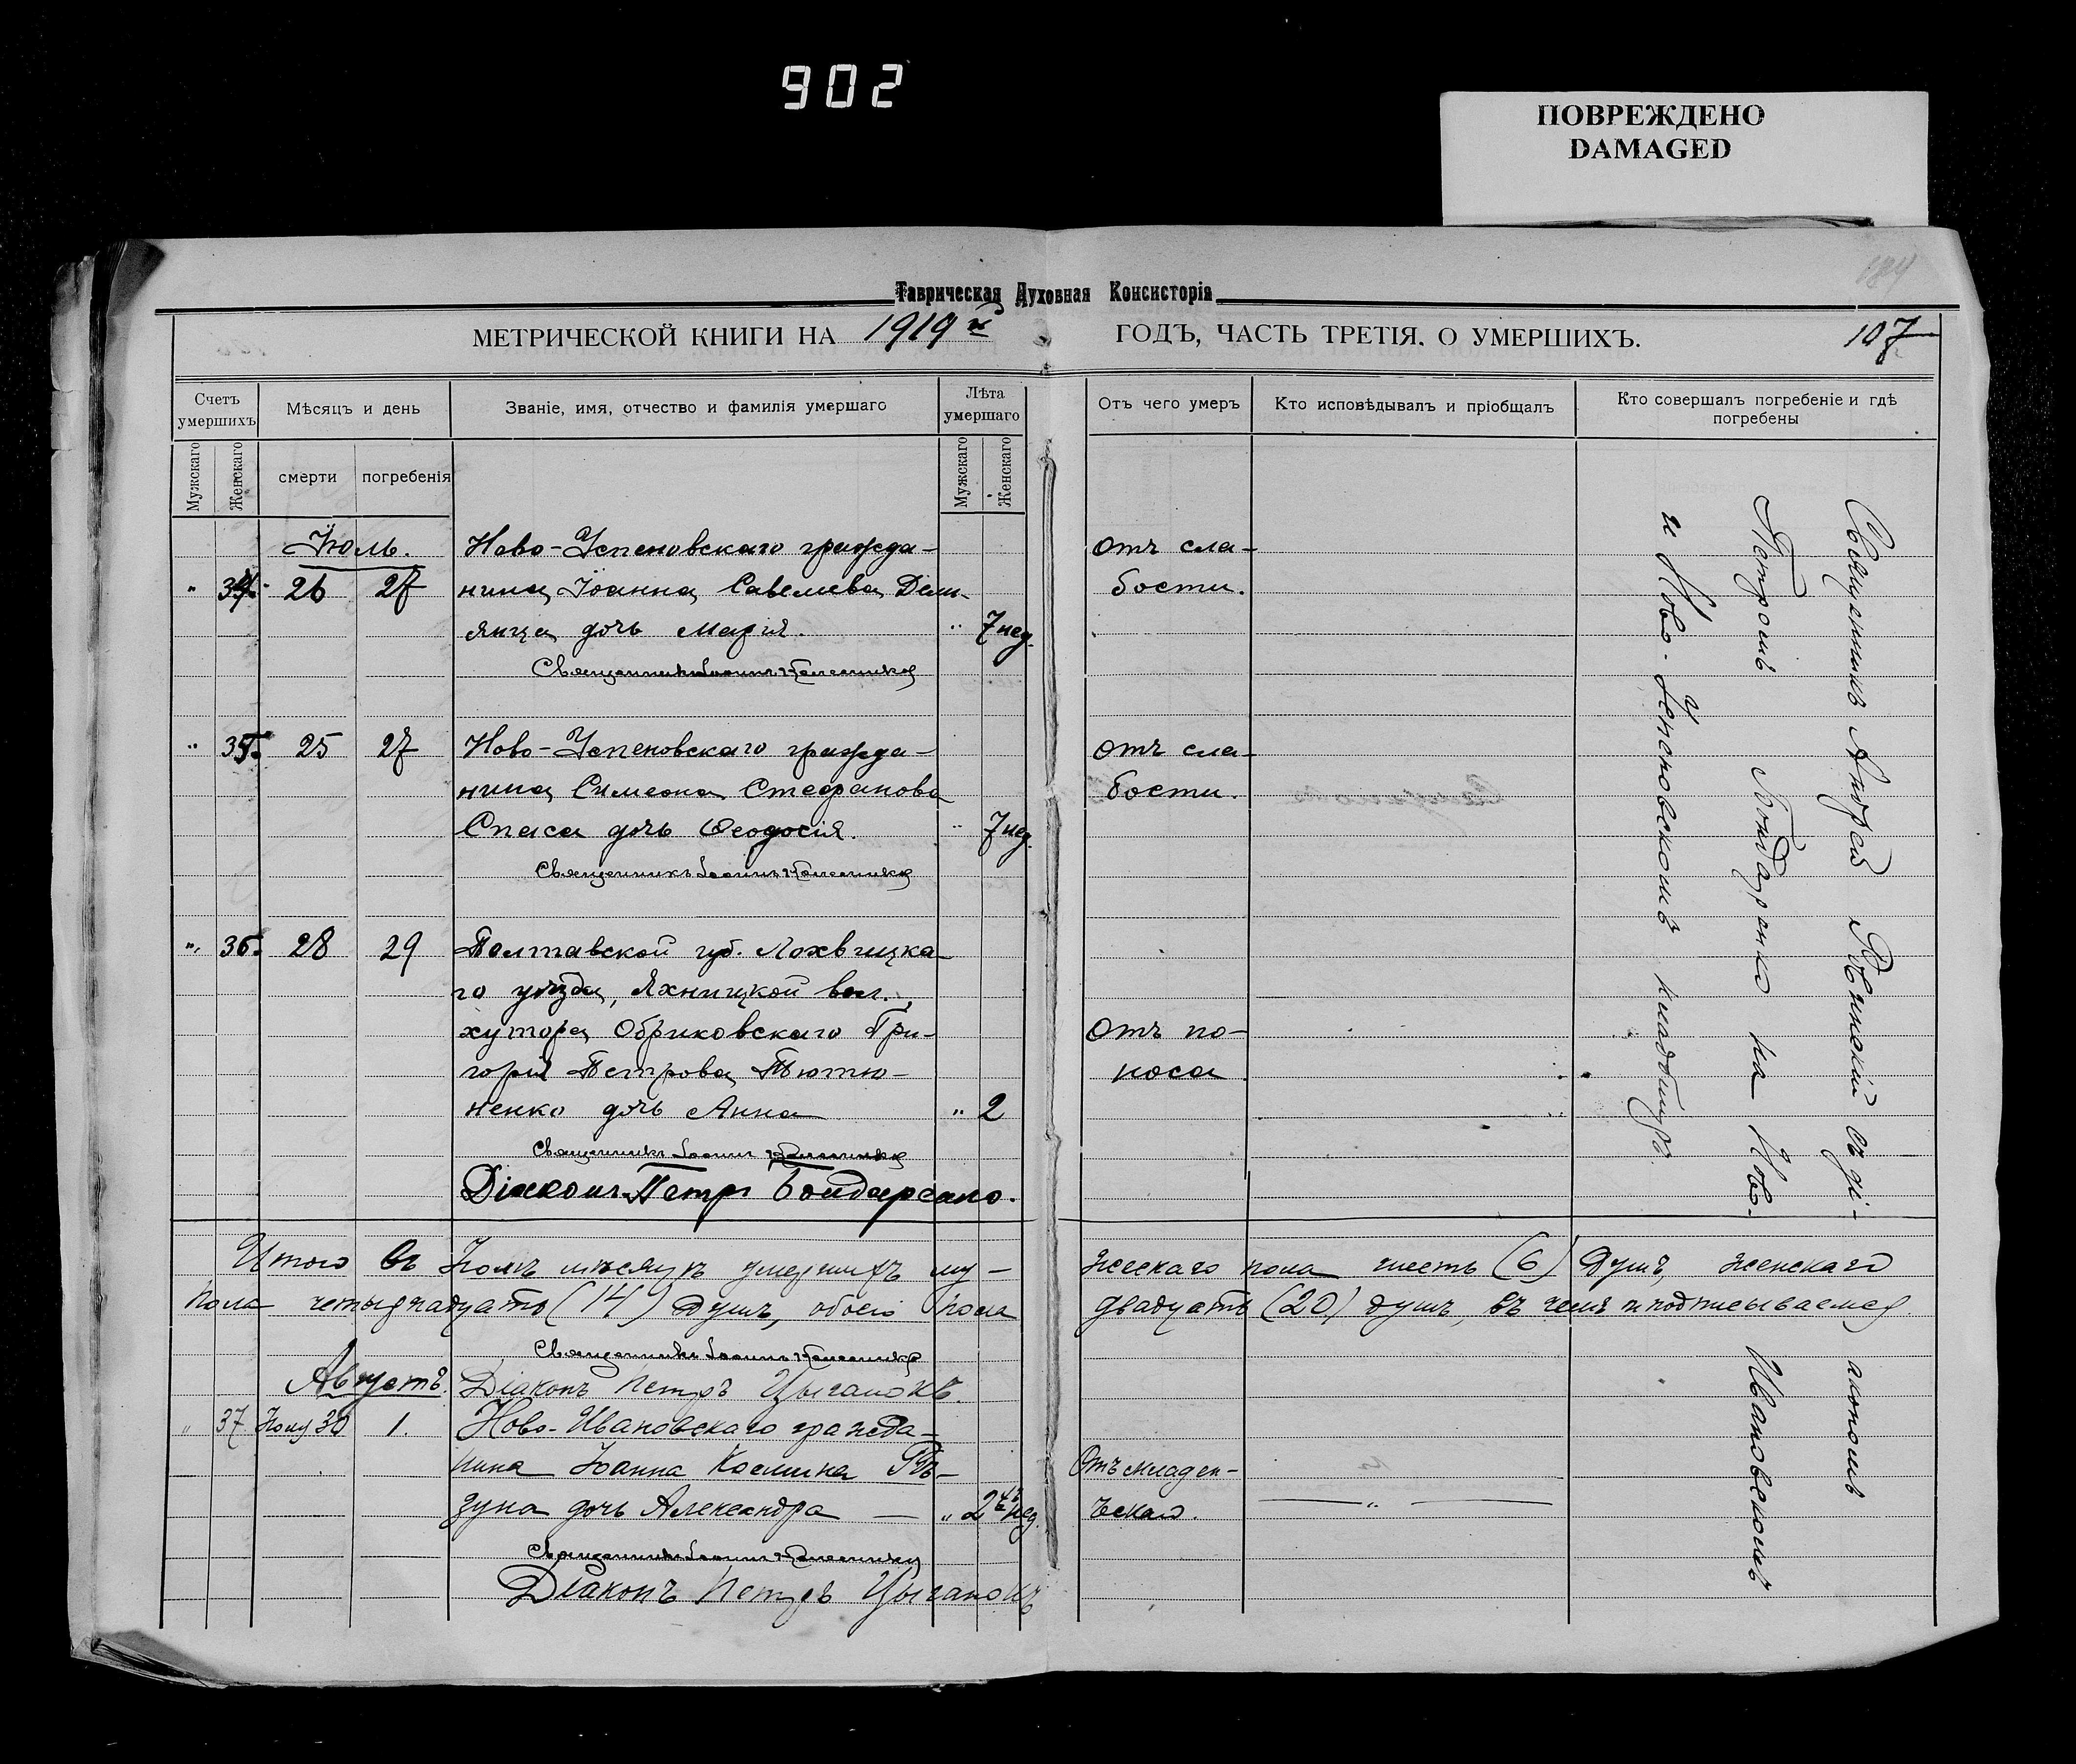 902
ПОВРЕЖДЕНО
DAMAGED
184
Таврическая Духовная Консисторія
МЕТРИЧЕСКОЙ КНИГИ НА 1919 й ГОДЪ, ЧАСТЬ ТРЕТІЯ, О УМЕРШИХЪ. 107
Счетъ умершихъ
Мѣсяцъ и день
Званіе, имя, отчество и фамилія умершаго
Лѣта умершаго
Отъ чего умеръ
Кто исповѣдывалъ и пріобщалъ
Кто совершалъ погребеніе и гдѣ погребены
Мужскаго
Женскаго
смерти
погребенія
Мужскаго
Женскаго
Іюль. Ново-Успеновскаго гражда- Отъ сла-
" 34. 26 27 нина Іоанна Савелиева бости.
дочь Марія. " 7 нед.
Священникъ Іоаннъ
" 35. 25 27 Ново-Успеновскаго гражда- Отъ сла-
нина Симеона Стефанова бости.
Спаса дочь Ѳеодосія. " 7 нед.
Священникъ Іоаннъ
" 36. 28 29 Полтавской губ. Лохвицка-
го уѣзда, Яхницкой вол.,
хутора Обриковскаго Гри- Отъ по-
горія Петрова Тютю- носа
ненко дочь Анна " 2
Священникъ Іоаннъ
Діаконъ Петръ Бондаренко.
Священникъ Андрей Ровинскій съ ді-
Петромъ Бондаренко на Ново-
и Ново-Успеновскомъ кладбищѣ.
Итого въ Іюлѣ мѣсяцѣ умершихъ му- жескаго пола шесть (6) душъ, женскаго
пола четырнадцать (14) душъ, обоего пола двадцать (20) душъ, въ чемъ и подписываемся
Священникъ Іоаннъ
Августъ. Діаконъ Петръ Цыганокъ.
" 37 Іюля 30 1. Ново-Ивановскаго гражда-
нина Іоанна Космина Рѣ- Отъ младен-
зуна дочь Александра — " 2 нед. ческаго. — " —
Священникъ Іоаннъ
Діаконъ Петръ Цыганокъ
акономъ
Ивановскомъ